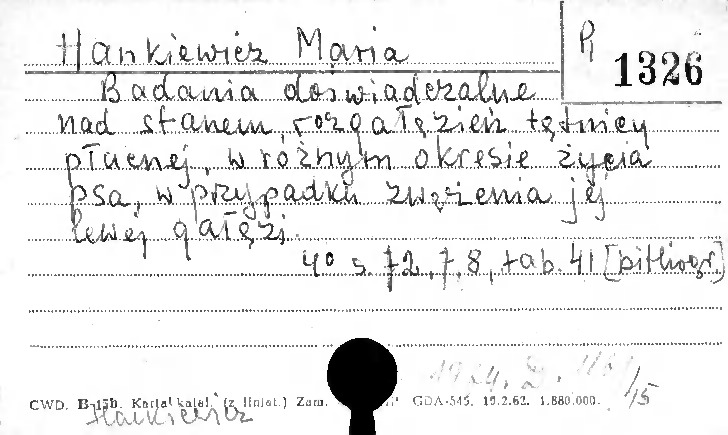 Hankiewicz Maria
R 1326
Badania doświadczalne
nad stanem rozgałęzień tętnicy
płucnej, w różnym okresie życia
psa, w przypadku zwężenia jej
lewej gałęzi.
4° s. 72, 7, 8, tab. 41 [bibliogr.]
CWD. B-15b. Karta katal. (z liniat.) Zam. GDA-545. 19.2.62. 1.880.000.
/15
Hankiewicz